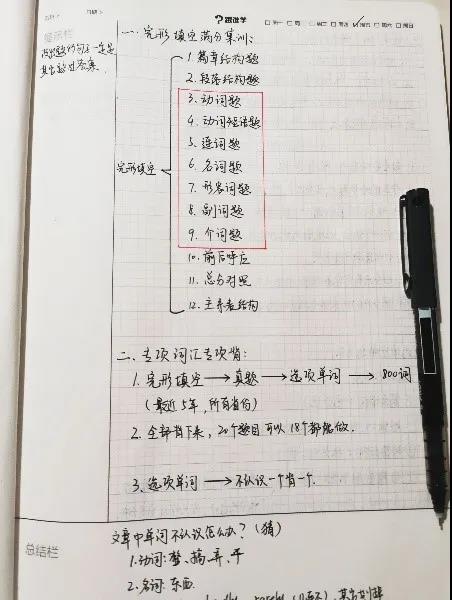 跟谁学
提示栏
一. 完形填空满分集训:
完形填空
1. 篇章结构题
2. 段落结构题
3. 动词题
4. 动词短语题
5. 连词题
6. 名词题
7. 形容词题
8. 副词题
9. 介词题
10. 前后呼应
11. 总分对照
12. 主养者结构
二. 专项词汇专项背:
1. 完形填空 → 真题 → 选项单词 → 800词
(最近5年, 所有省份)
2. 全部背下来, 20个题目可以18个都能做.
3. 选项单词 → 不认识一个背一个.
总结栏
文章中单词不认识怎么办? (猜)
1. 动词: 整、搞、弄、干
2. 名词: 东西.